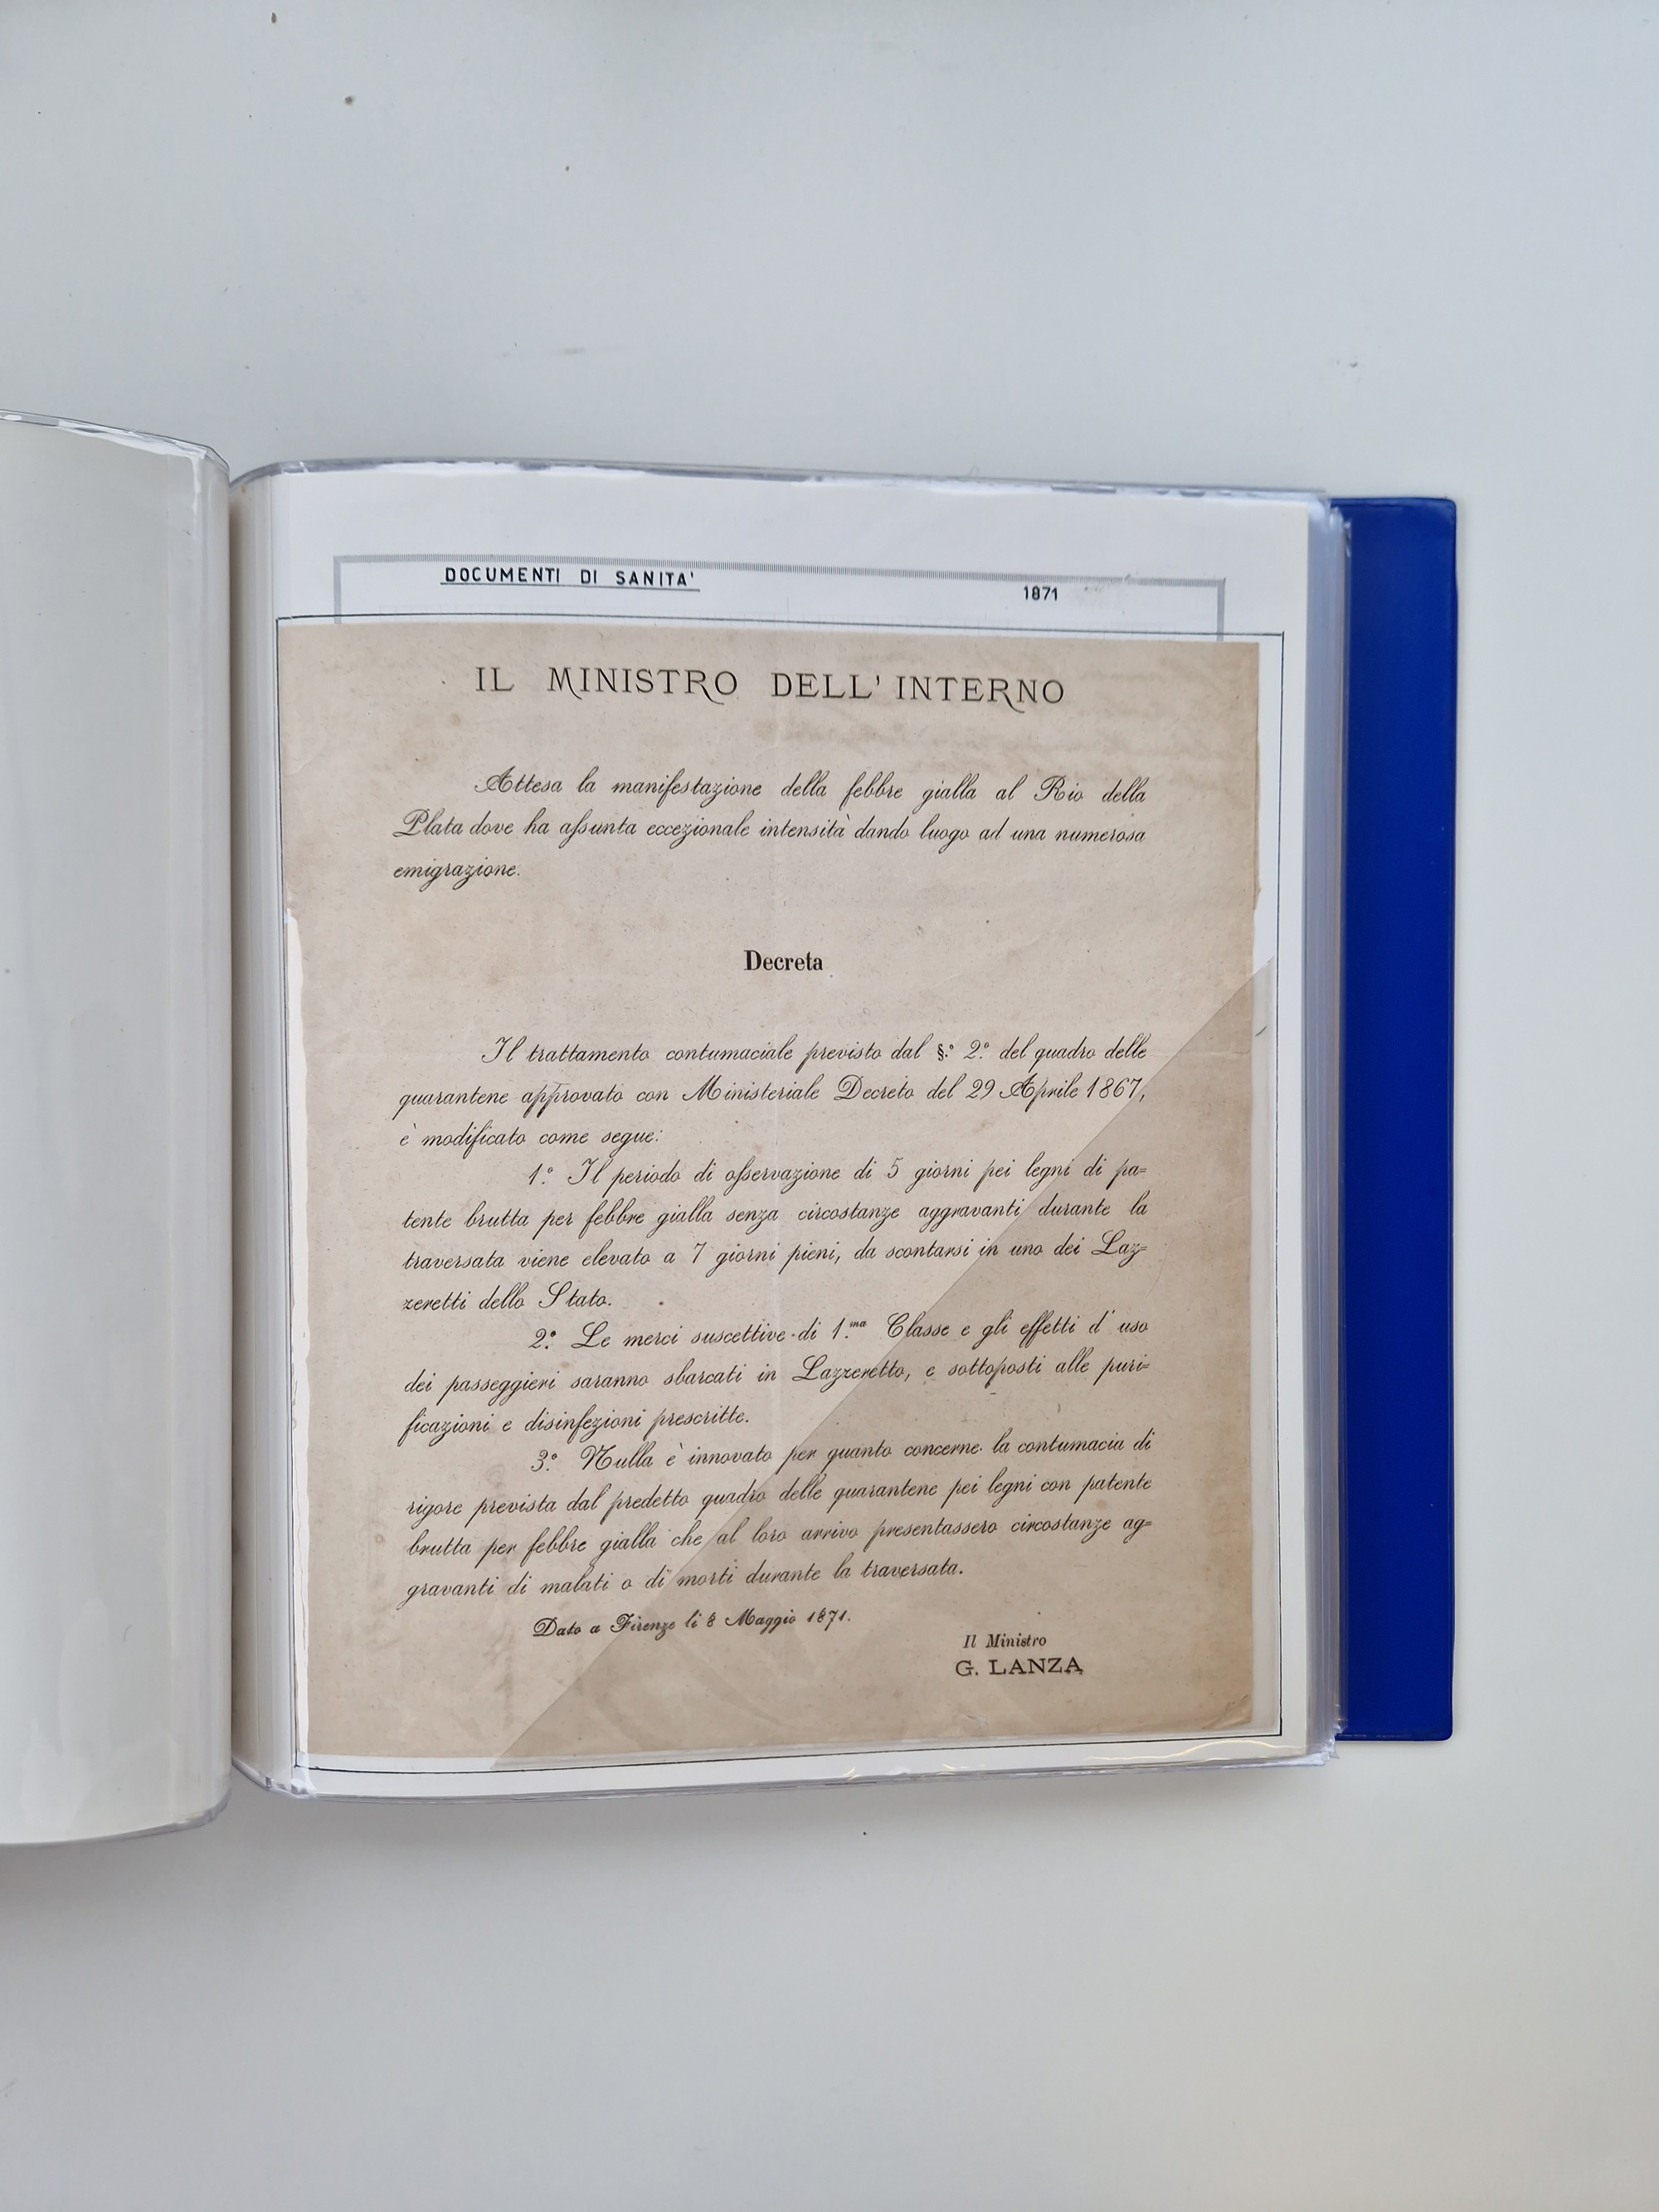 DOCUMENTI DI SANITA'
1871
IL MINISTRO DELL'INTERNO
Attesa la manifestazione della febbre gialla al Rio della
Plata dove ha assunta eccezionale intensità dando luogo ad una numerosa
emigrazione.
Decreta
Il trattamento contumaciale previsto dal §.º 2.º del quadro delle
quarantene approvato con Ministeriale Decreto del 29 Aprile 1867,
è modificato come segue:
1.º Il periodo di osservazione di 5 giorni pei legni di pa=
tente brutta per febbre gialla senza circostanze aggravanti durante la
traversata viene elevato a 7 giorni pieni, da scontarsi in uno dei Laz=
zeretti dello Stato.
2.º Le merci suscettive di 1.ma Classe e gli effetti d'uso
dei passeggieri saranno sbarcati in Lazzeretto, e sottoposti alle puri=
ficazioni e disinfezioni prescritte.
3.º Nulla è innovato per quanto concerne la contumacia di
rigore prevista dal predetto quadro delle quarantene pei legni con patente
brutta per febbre gialla che al loro arrivo presentassero circostanze ag=
gravanti di malati o di morti durante la traversata.
Dato a Firenze li 8 Maggio 1871.
Il Ministro
G. LANZA